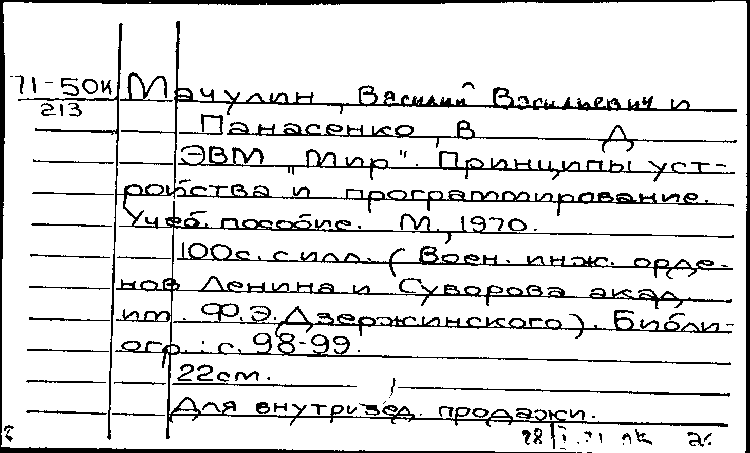 71-50к Мачулин, Василий Васильевич и
213
Панасенко, В Д
ЭВМ „Мир". Принципы уст-
ройства и программирование.
Учеб. пособие. М., 1970.
100с. с илл. (Воен. инж. орде-
нов Ленина и Суворова акад.
им. Ф.Э.Дзержинского). Библи-
огр.: с. 98-99.
22см.
Для внутривед. продажи.
28/I.71